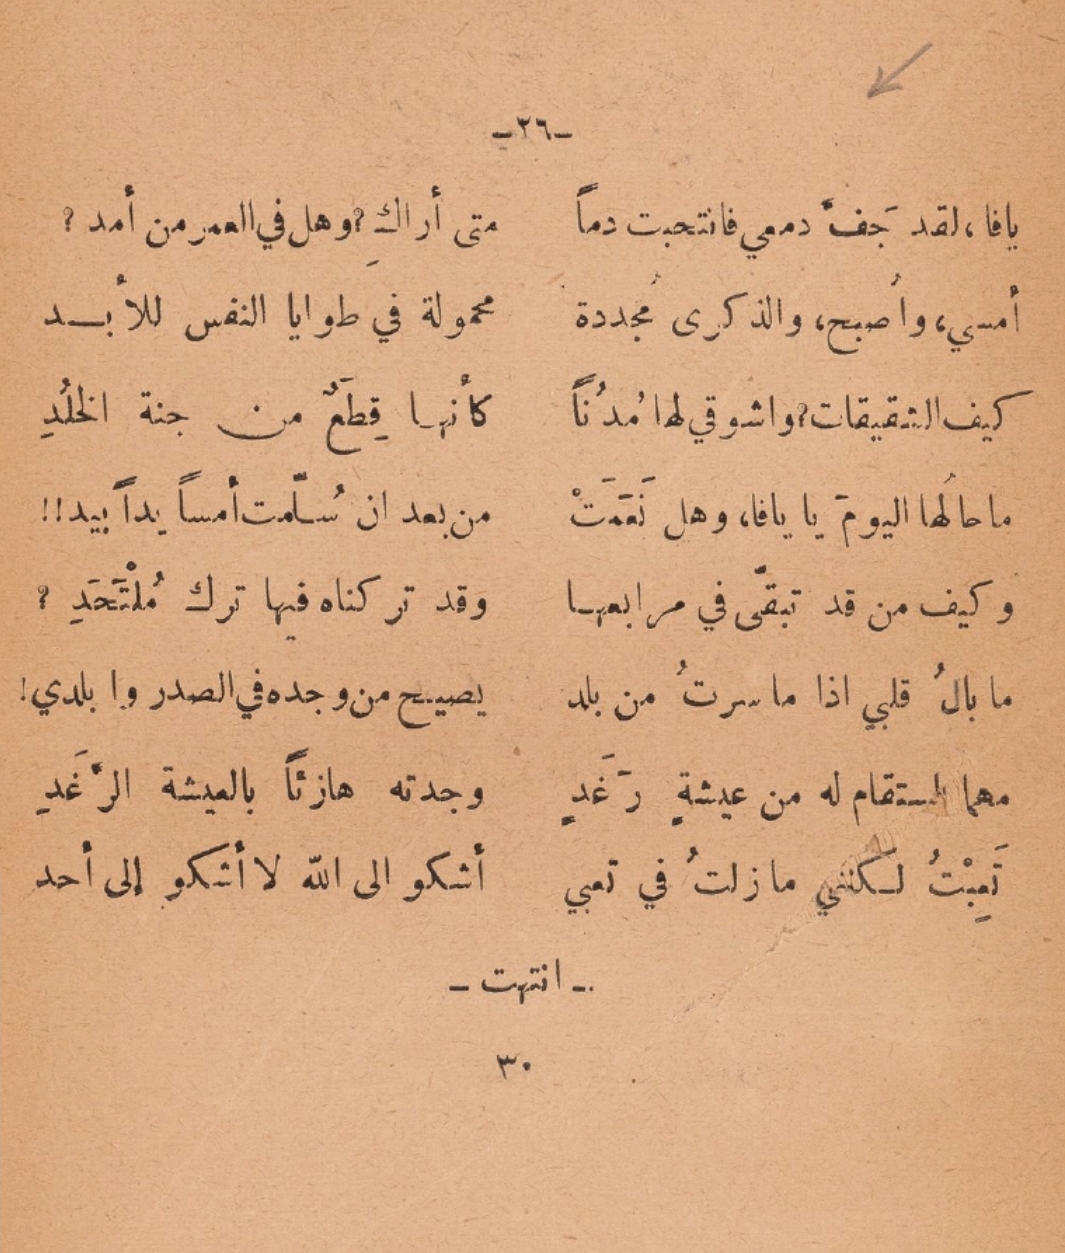 -٢٦-
يافا، لقد جَفَّ دمعي فانتحبت دماً متى أراكِ؟ وهل في العمر من أمد؟
أمسي، وأُصبح، والذكرى مُجددة محمولة في طوايا النفس للأبــد
كيف الشقيقات؟ واشوقي لها مُدُناً كأنها قِطَعٌ من جنة الخلُدِ
ما حالُها اليومَ يا يافا، وهل نَعَمَتْ من بعد ان سُلّمت أمساً يداً بيد!!
وكيف من قد تبقّى في مرابعها وقد تركناه فيها ترك مُلْتَحَدِ؟
ما بالُ قلبي اذا ما سرتُ من بلد يصيح من وجده في الصدر وا بلدي!
مهما استقام له من عيشةٍ رَغَدٍ وجدته هازئاً بالعيشة الرَّغَدِ
تَعِبْتُ لكنني ما زلتُ في تعبي أشكو الى الله لا أشكو إلى أحد
- انتهت -
٣٠